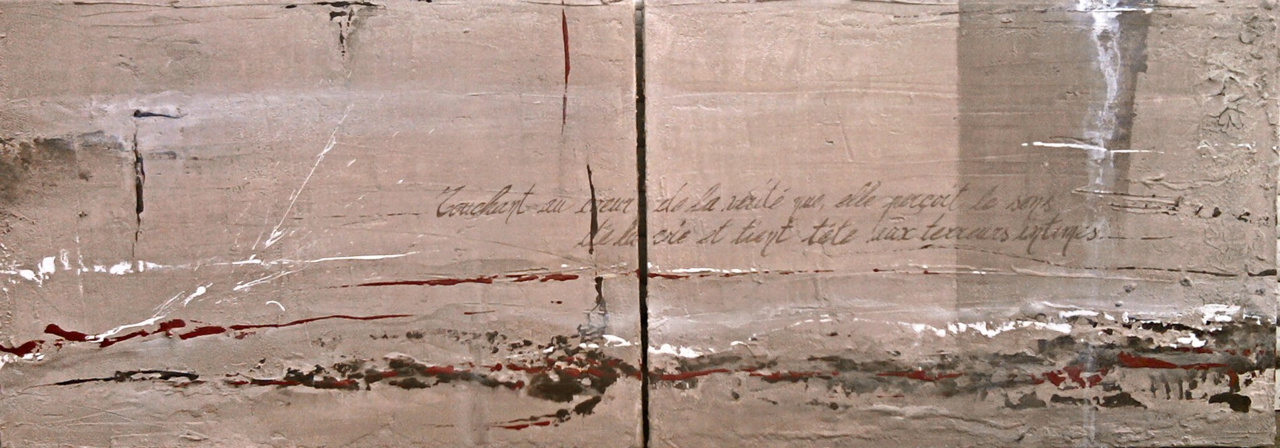 Touchant au cœur de la vérité que, elle perçoit le sens
de la vie et tient tête aux terreurs intimes